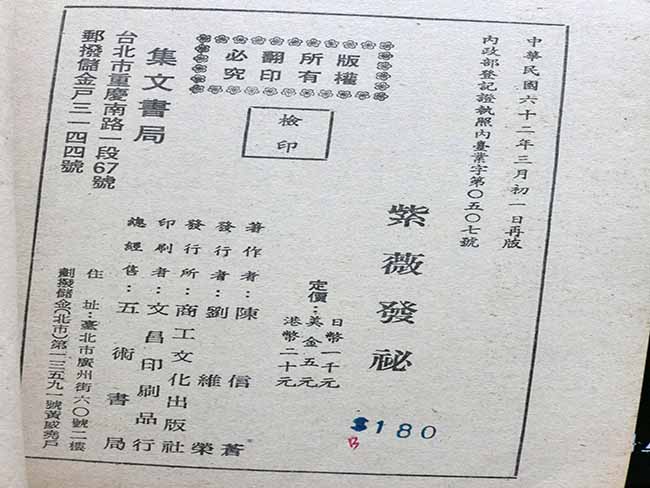 中華民國六十二年三月初一日再版
內政部登記證執照內臺業字第〇五〇七號
紫薇發祕
定價：
日幣一千元
美金五元
港幣二十元
$180
B
著作者：陳信蒼
發行者：劉維榮
發行所：商工文化出版社
印刷者：文昌印刷品行
總經售：五術書局
住址：臺北市廣州街六〇號二樓
劃撥儲金(北市)第一三五九一號黃威堯戶
版權
所有
翻印
必究
檢印
集文書局
台北市重慶南路一段67號
郵撥儲金戶三一四四號